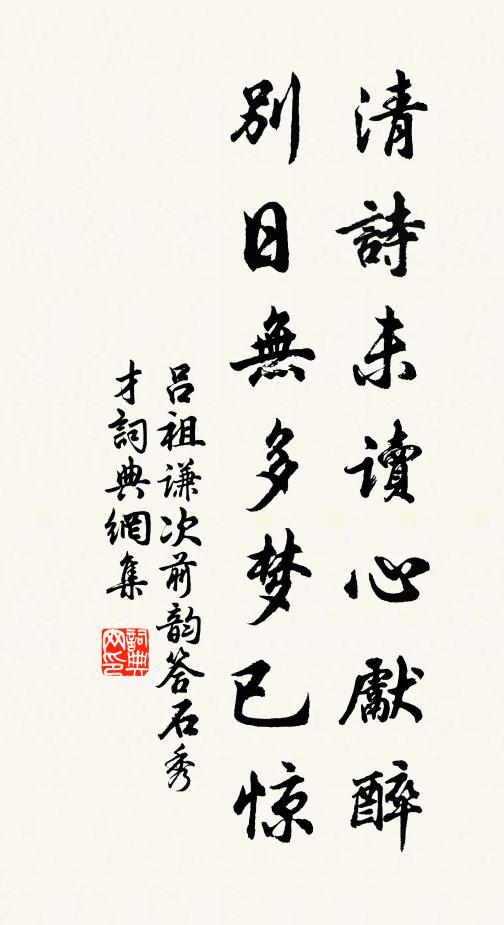 清詩未讀心獻醉
別日無多梦已惊
呂祖谦次前韵答石秀
才詞典網集
詞典网印